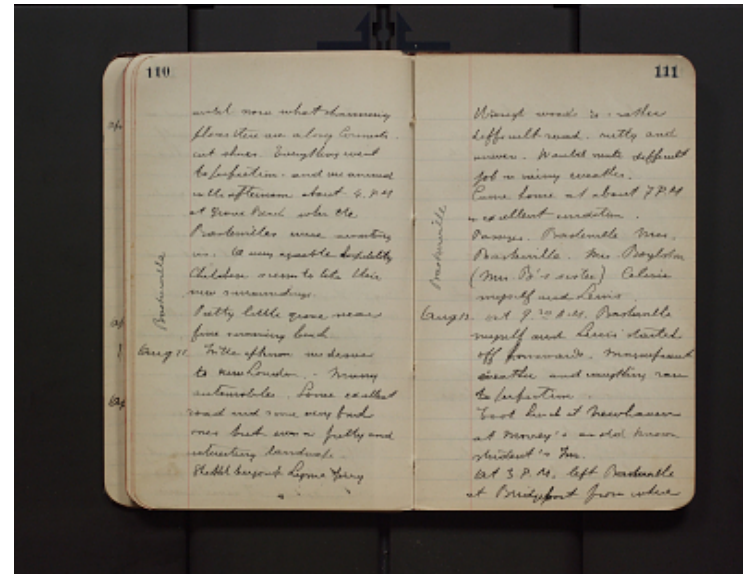 110
until now what charming
places there are along Connecti-
cut shores. Everything went
to perfection and we arrived
in the afternoon about 4. P.M
at Grove Beach where the
Baskervilles were awaiting
us. A very agreable hospitality
Children seem to like their
new surroundings.
Pretty little grove near
fine running beach.
Baskerville
Aug 11. In the afternoon we drove
to New London. - Many
automobiles. Some excellent
road and some very bad
ones but even a pretty and
interesting landscape.
Shortcut beyond Lyme Ferry
111
through woods is rather
difficult road. rutty and
uneven. Would make difficult
job in rainy weather.
Came home at about 7 P.M
in excellent condition.
Passengers. Baskerville Mrs.
Baskerville. Mrs.
(Mrs. B's sister) Celine
myself and Lewis.
Baskerville
Aug 12. At 9. A.M. Baskerville
myself and Lewis started
off homewards. Magnificent
weather and everything ran
to perfection.
Took lunch at Newhaven
at Morey's an old known
student's Inn.
At 3 P.M. left Baskerville
at Bridgeport from where